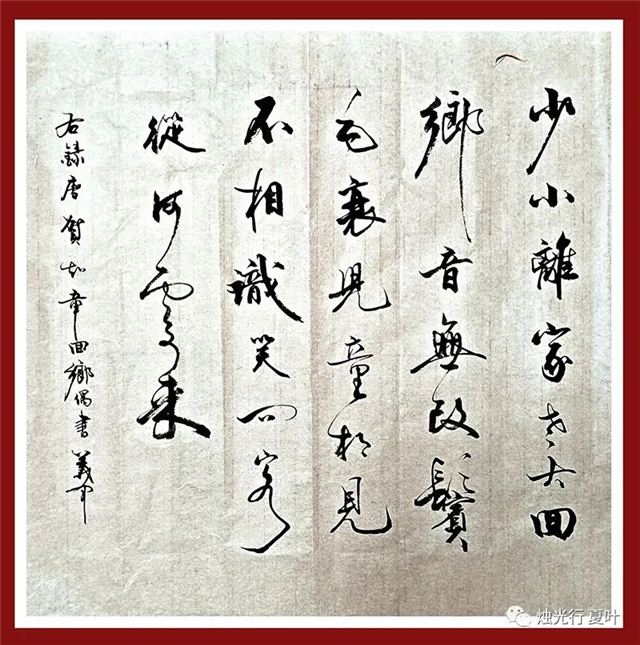 少小離家老大回
鄉音無改鬢
毛衰兒童相見
不相識笑问客
從何處来
右錄唐賀知章回鄉偶書 義中
烛光行 夏叶